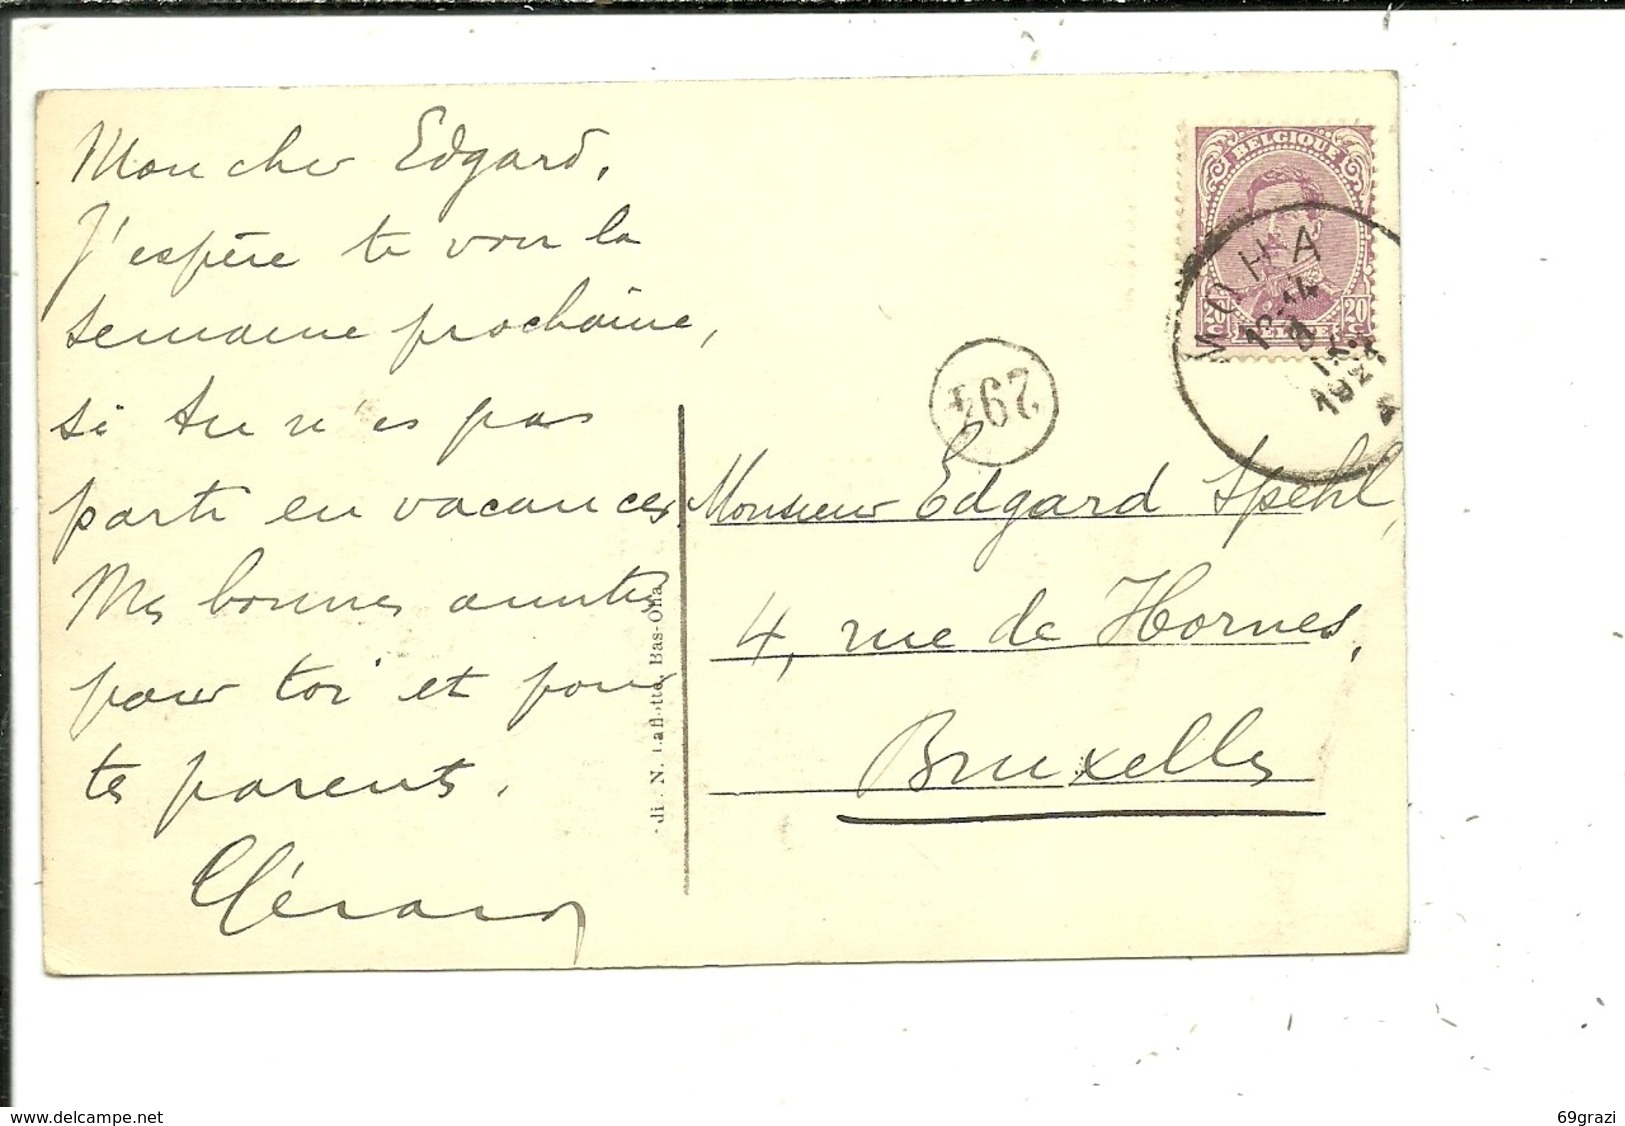 Mon cher Edgard,
J'espère te voir la
semaine prochaine,
si tu n'es pas
parti en vacances.
Mes bonnes amitiés
pour toi et pour
tes parents.
Gérard
N. Laflotte, Bas-Oha
BELGIQUE
20 C
20 C
BELGIË
MOHA
1921
Monsieur Edgard Spehl,
4, rue de Hornes,
Bruxelles
www.delcampe.net
69grazi